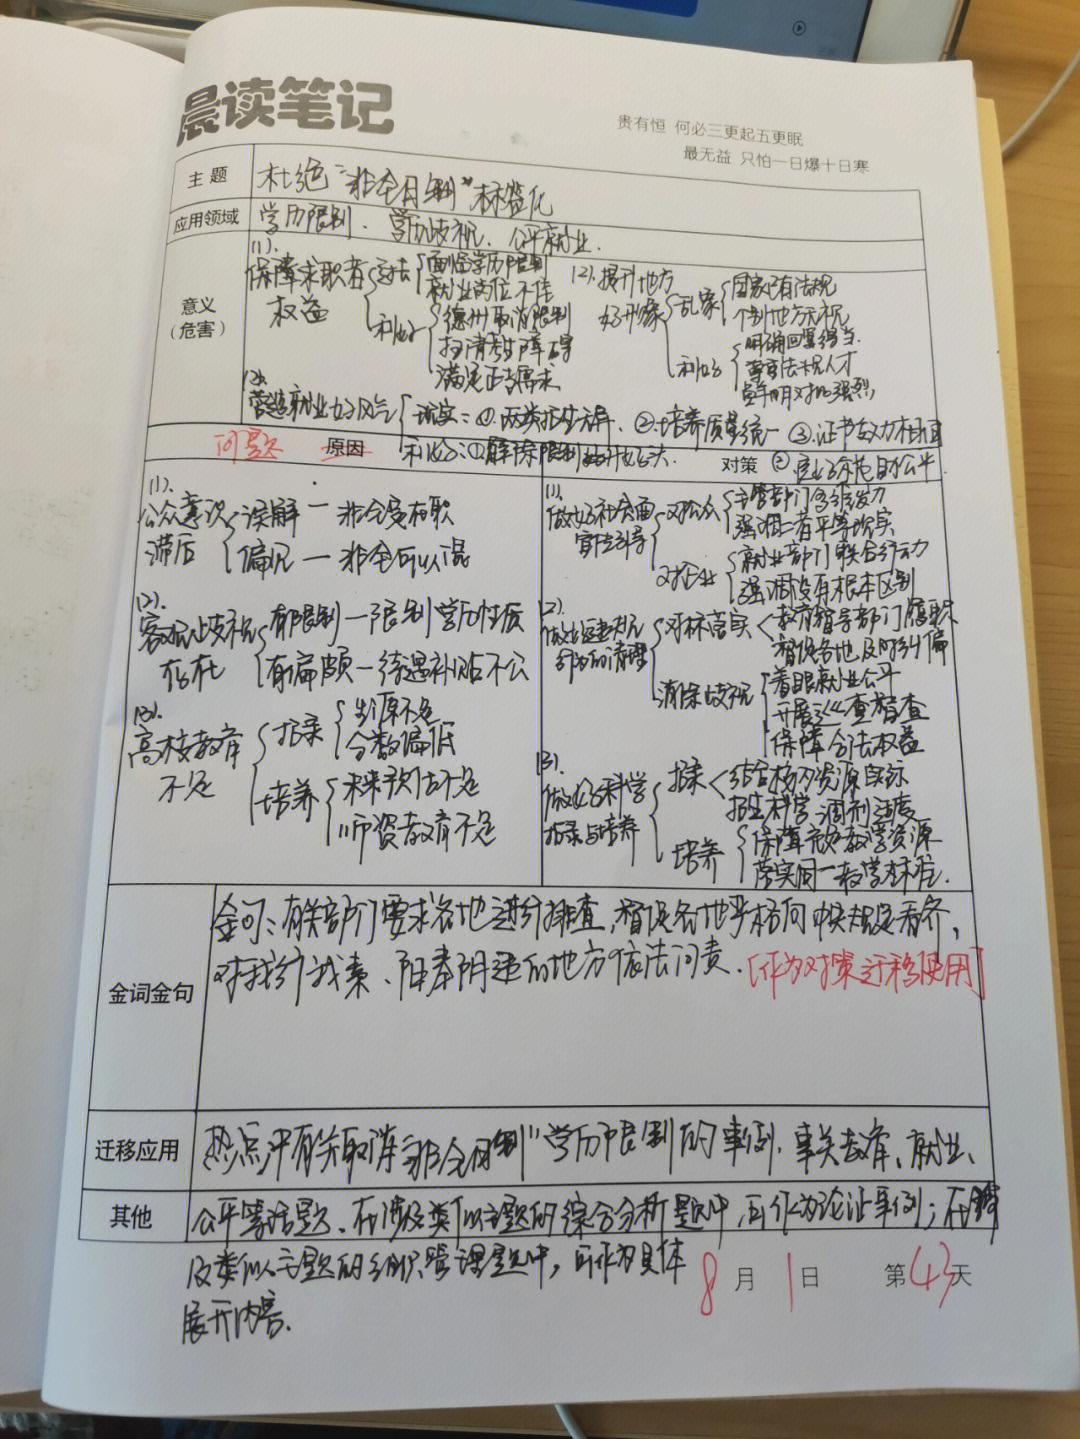 晨读笔记
贵有恒 何必三更起五更眠
最无益 只怕一日爆十日寒
主题
杜绝"非全日制"标签化
应用领域
学历限制、学历歧视、公平就业.
意义
(危害)
(1).
保障求职者
权益
面临学历限制
就业岗位不佳
利好
德州取消限制
扫清考生障碍
满足正当需求
(2).提升地方
好形象
乱象
国家已有法规
个别地方无视
利好
明确回署得当.
尊重法规人才
鲜明对比强烈
营造就业好风气
现实:①.两类招生无异.②.培养质量统一 ③.证书效力相同
问题
原因
利好:①解除限制开好头.
对策
(1).
公众意识
滞后
误解 — 非全是在职
偏见 — 非全可以混
(2).
客观歧视
存在
有限制 — 限制学历性质
有偏颇 — 待遇补贴不公
(3).
高校教育
不足
招录
生源不足
分数偏低
培养
未来预估不足
师资教育不足
(1).
做好社会面
宣传引导
对公众
主管部门多维发力
强调二者平等现实
对企业
就业部门联合行动
强调没有根本区别
(2).
做好违规
行为的清理
对标落实
教育指导部门履职
督促各地及时纠偏
消除歧视
着眼就业公平
开展巡查督查
保障合法权益
(3).
做好科学
招录与培养
招录
结合校内资源实际
招生科学调剂适度
培养
保障充分教学资源
落实同一教学标准.
金词金句
金句:有关部门要求各地进行排查,督促各地严格向中央规定看齐,
对我行我素、阳奉阴违的地方依法问责.[作为对策迁移使用]
迁移应用
热点中有关取消"非全日制"学历限制的事例.事关教育、就业、
其他
公平等话题、在涉及类似主题的综合分析题中,可作为论证事例;在涉
及类似主题的组织管理题中,可作为具体
展开内容.
8月1日 第43天